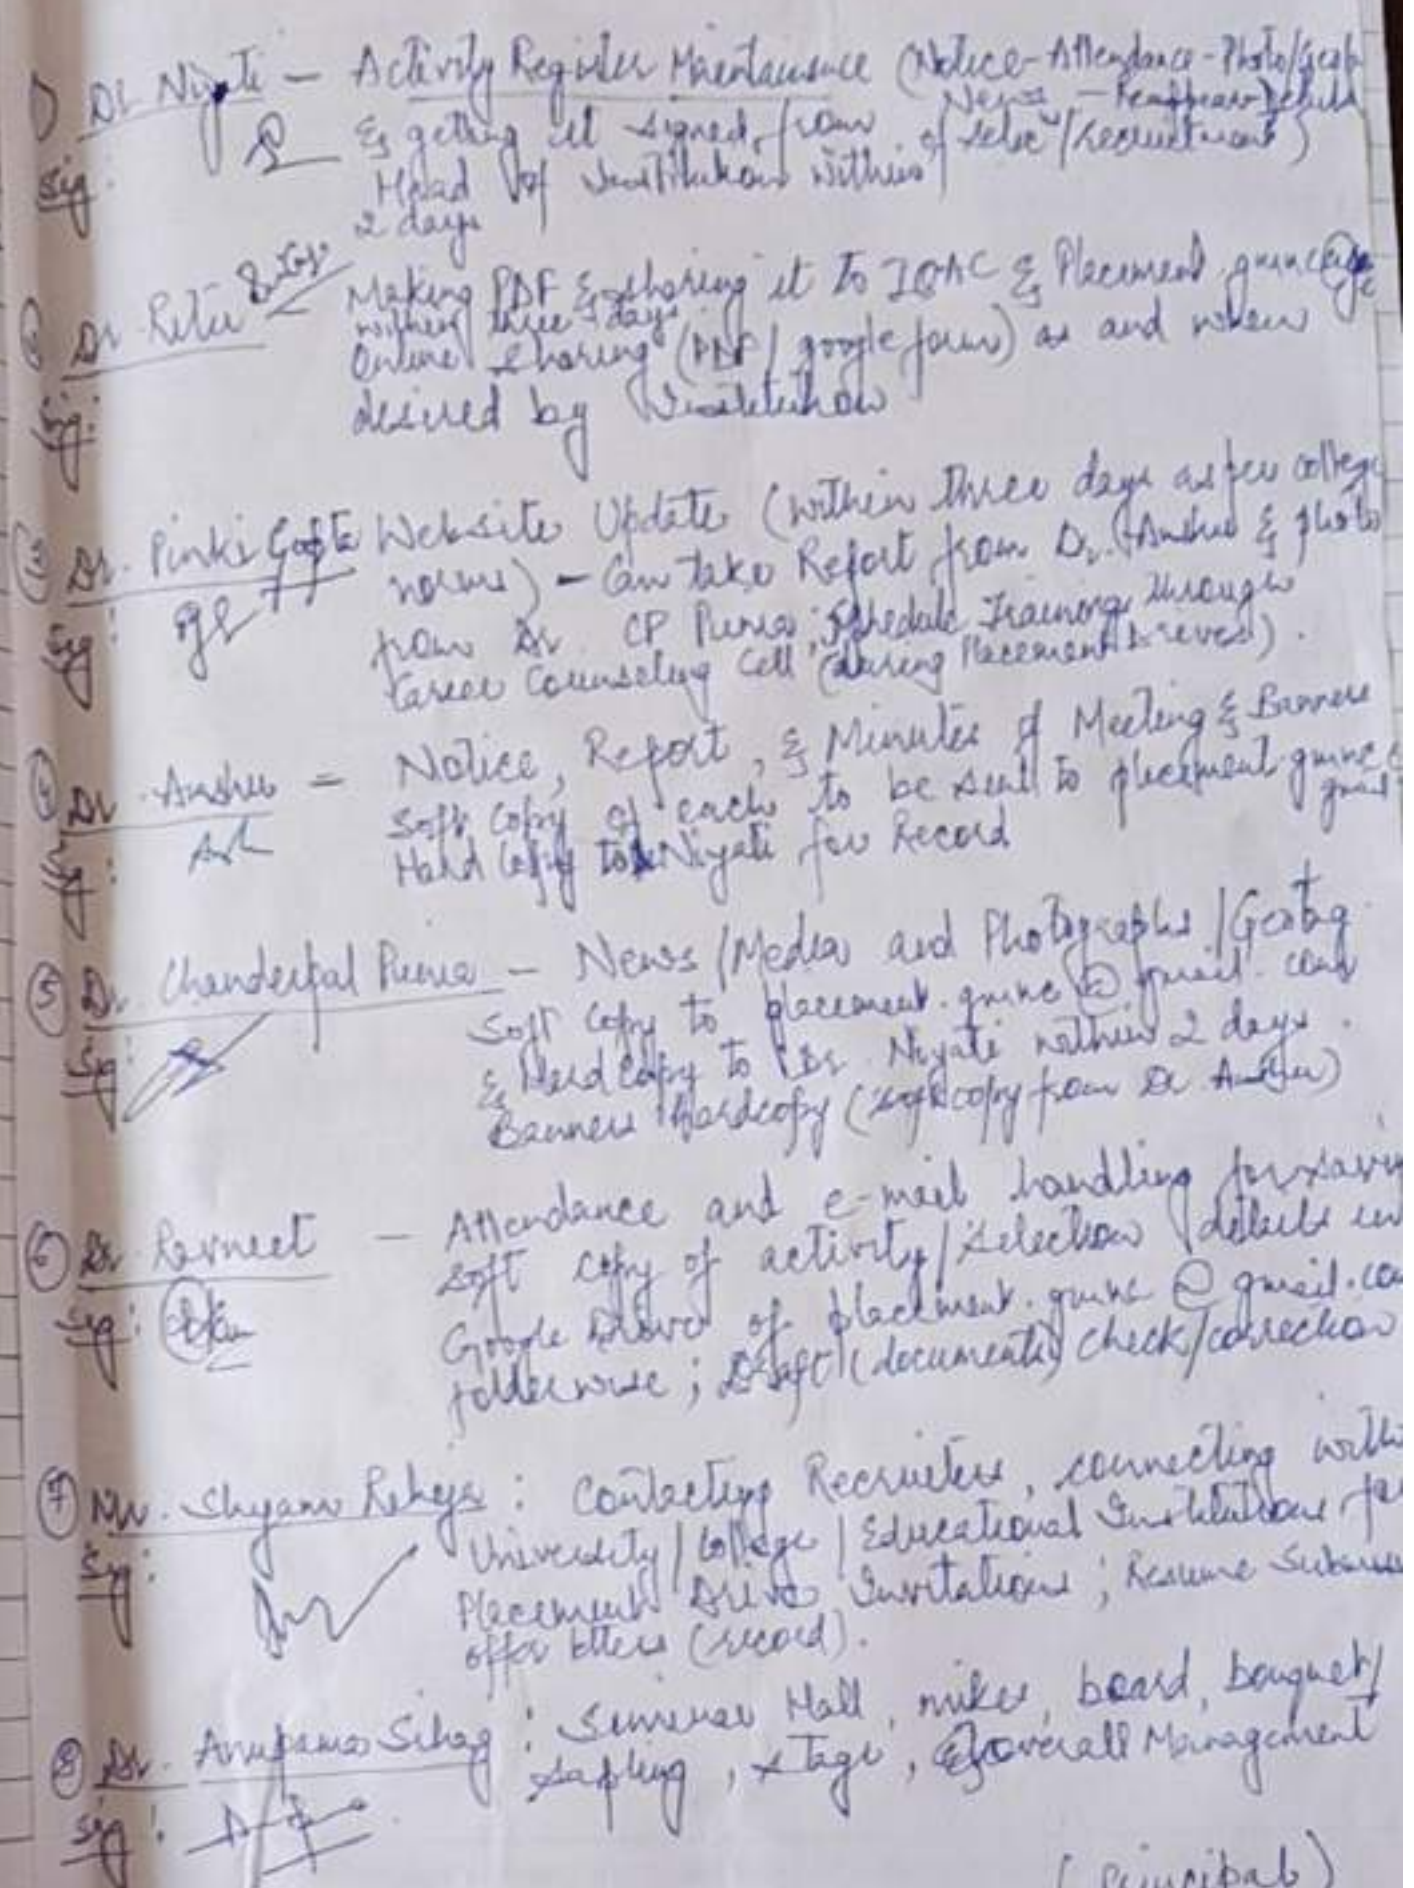 1) Dr Niyati — Activity Register Maintenance (Notice-Attendance-Photo/Geotag
News -
& getting it signed from of selec /recruitment)
Sig: Head of Institution within
2 days
② Dr. Ritu Making PDF & sharing it to IQAC & Placement.gmnc@
within three days
Online sharing (PDF/google form) as and when
Sig: desired by Institution
③ Dr. Pinki Gupta Website Update (within three days as per college
norms) - Can take Report from Dr. Anshu & photo
Sig: from Dr CP Punia; Schedule Training through
Career Counseling Cell (during Placement Drives).
④ Dr. Anshu = Notice, Report, & Minutes of Meeting & Banner
Soft Copy of each to be sent to placement.gmnc@
gmail
Sig: Hard Copy to Niyati for Record
⑤ Dr. Chanderpal Punia - News/Media and Photographs/Geotag
Soft Copy to placement.gmnc@gmail.com
Sig: & Hard Copy to Dr. Niyati within 2 days.
Banner Hardcopy (softcopy from Dr Anshu)
⑥ Dr Ravneet - Attendance and e-mail handling for saving
soft copy of activity/selection details in
Sig: Google Drive of placement.gmnc@gmail.com
folderwise; Draft (documents) check/correction
⑦ Mr. Shyam Raheja: Contacting Recruiters, connecting with
Sig: University/College/Educational Institutions for
Placement Drive Invitations; Resume
offer letters (record).
⑧ Dr. Anupama Sihag: Seminar Hall, mikes, board, bouquet/
sapling, stage, & overall Management
Sig:
(Principal)